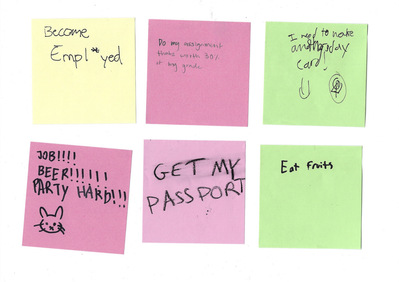 Become
Do my assignment
thats worth 30%
of my grade
I need to make
card!
JOB!!!!
BEER!!!!!!
PARTY HARD!!!
GET MY
PASSPORT
Eat fruits